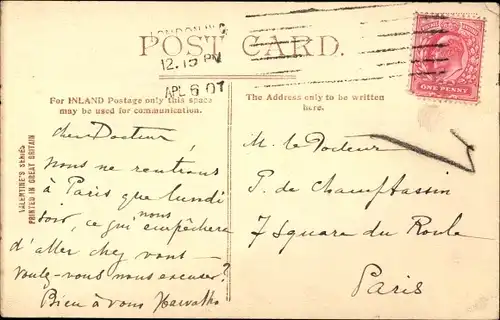 LONDON. W.
12.15 PM
APL 6 07
POST CARD.
ONE PENNY
For INLAND Postage only this space
may be used for communication.
The Address only to be written
here.
VALENTINE'S SERIES
PRINTED IN GREAT BRITAIN
cher Docteur
Nous ne rentrons
à Paris que lundi
soir, ce qui nous empêchera
d'aller chez vous —
Voulez-vous nous excuser?
Bien à vous
M. le Docteur
P. de Champtassin
7 Square du Roule
Paris